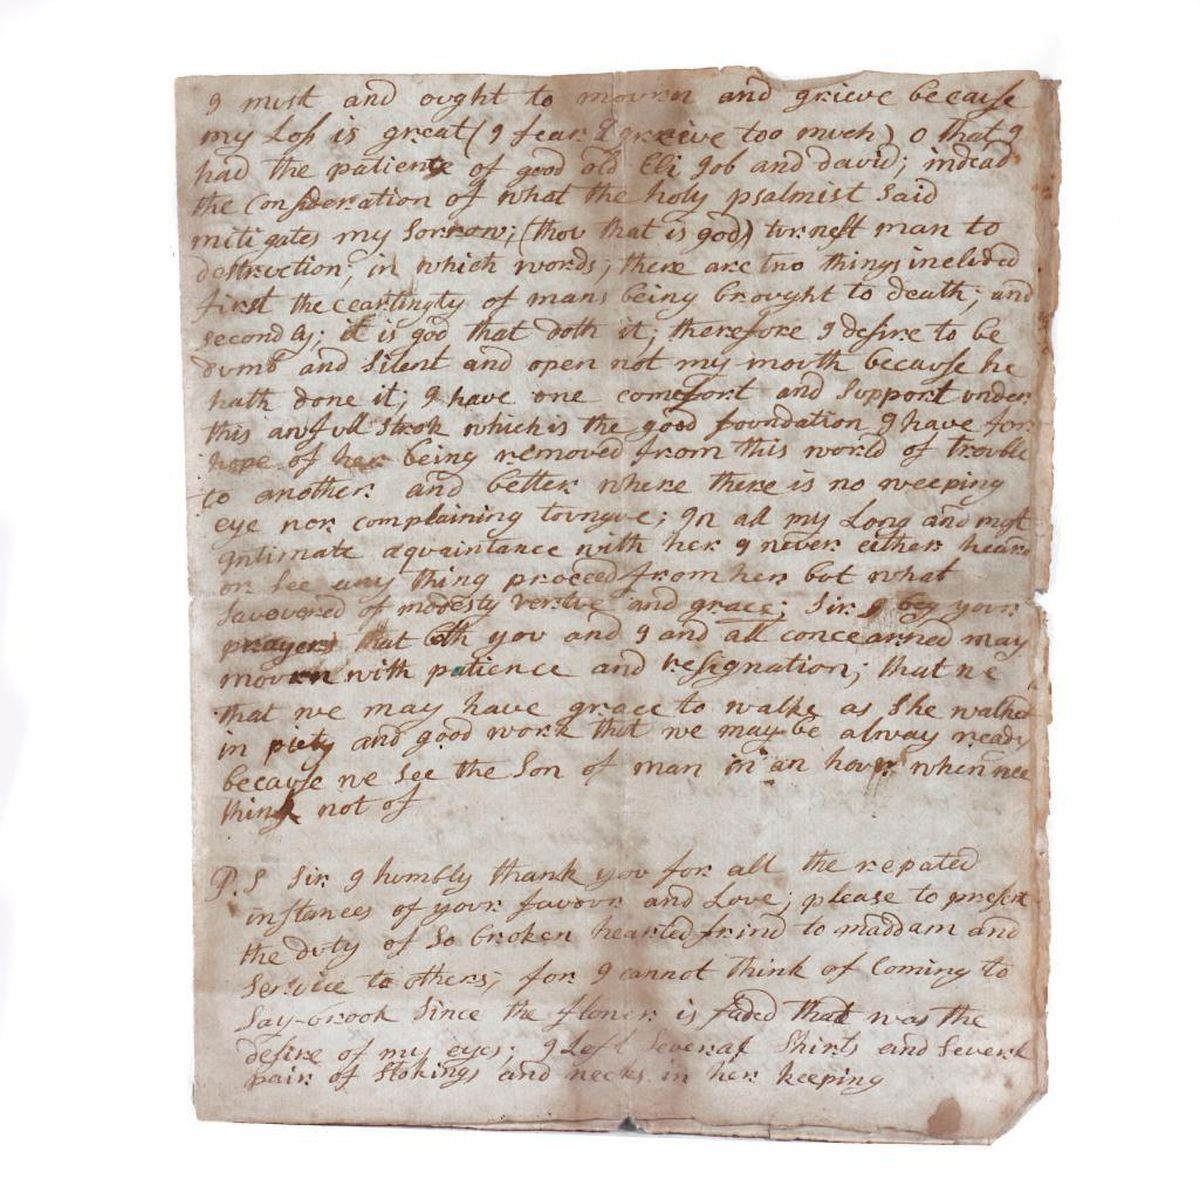 I must and ought to mourn and grieve because
my Loss is great (I fear I greive too much) o that I
had the patiente of good old Eli Job and david; indead
the Consideration of what the holy psalmist Said
mitigates my Sorrow; (thou that is god) turnest man to
destruction; in which words; there are two things included
first the ceartingty of mans being brought to death; and
secondly; it is god that doth it; therefore I desire to be
dumb and Silent and open not my mouth because he
hath done it; I have one comefort and Support under
this awfull Strok which is the good foundation I have for
hope of her being removed from this world of trouble
to another and better where there is no weeping
eye nor complaining toungue; In all my Long and most
Intimate aquaintance with her I never either heard
or See any thing proceed from her but what
Savovered of modesty vertue and grace; Sir I beg your
prayers that both you and I and all concearned may
mourn with patience and resignation; that we
that we may have grace to walke as She walked
in piety and good work that we may be alway ready
because we See the Son of man in an hour when wee
think not of
P.S Sir I humbly thank you for all the repated
instances of your favour and Love; please to present
the duty of So broken hearted frind to maddam and
Service to others; for I cannot think of Coming to
Say-brook Since the flower is faded that was the
desire of my eyes; I Left Several Shirts and Severl
pair of Stokings and necks in her keeping